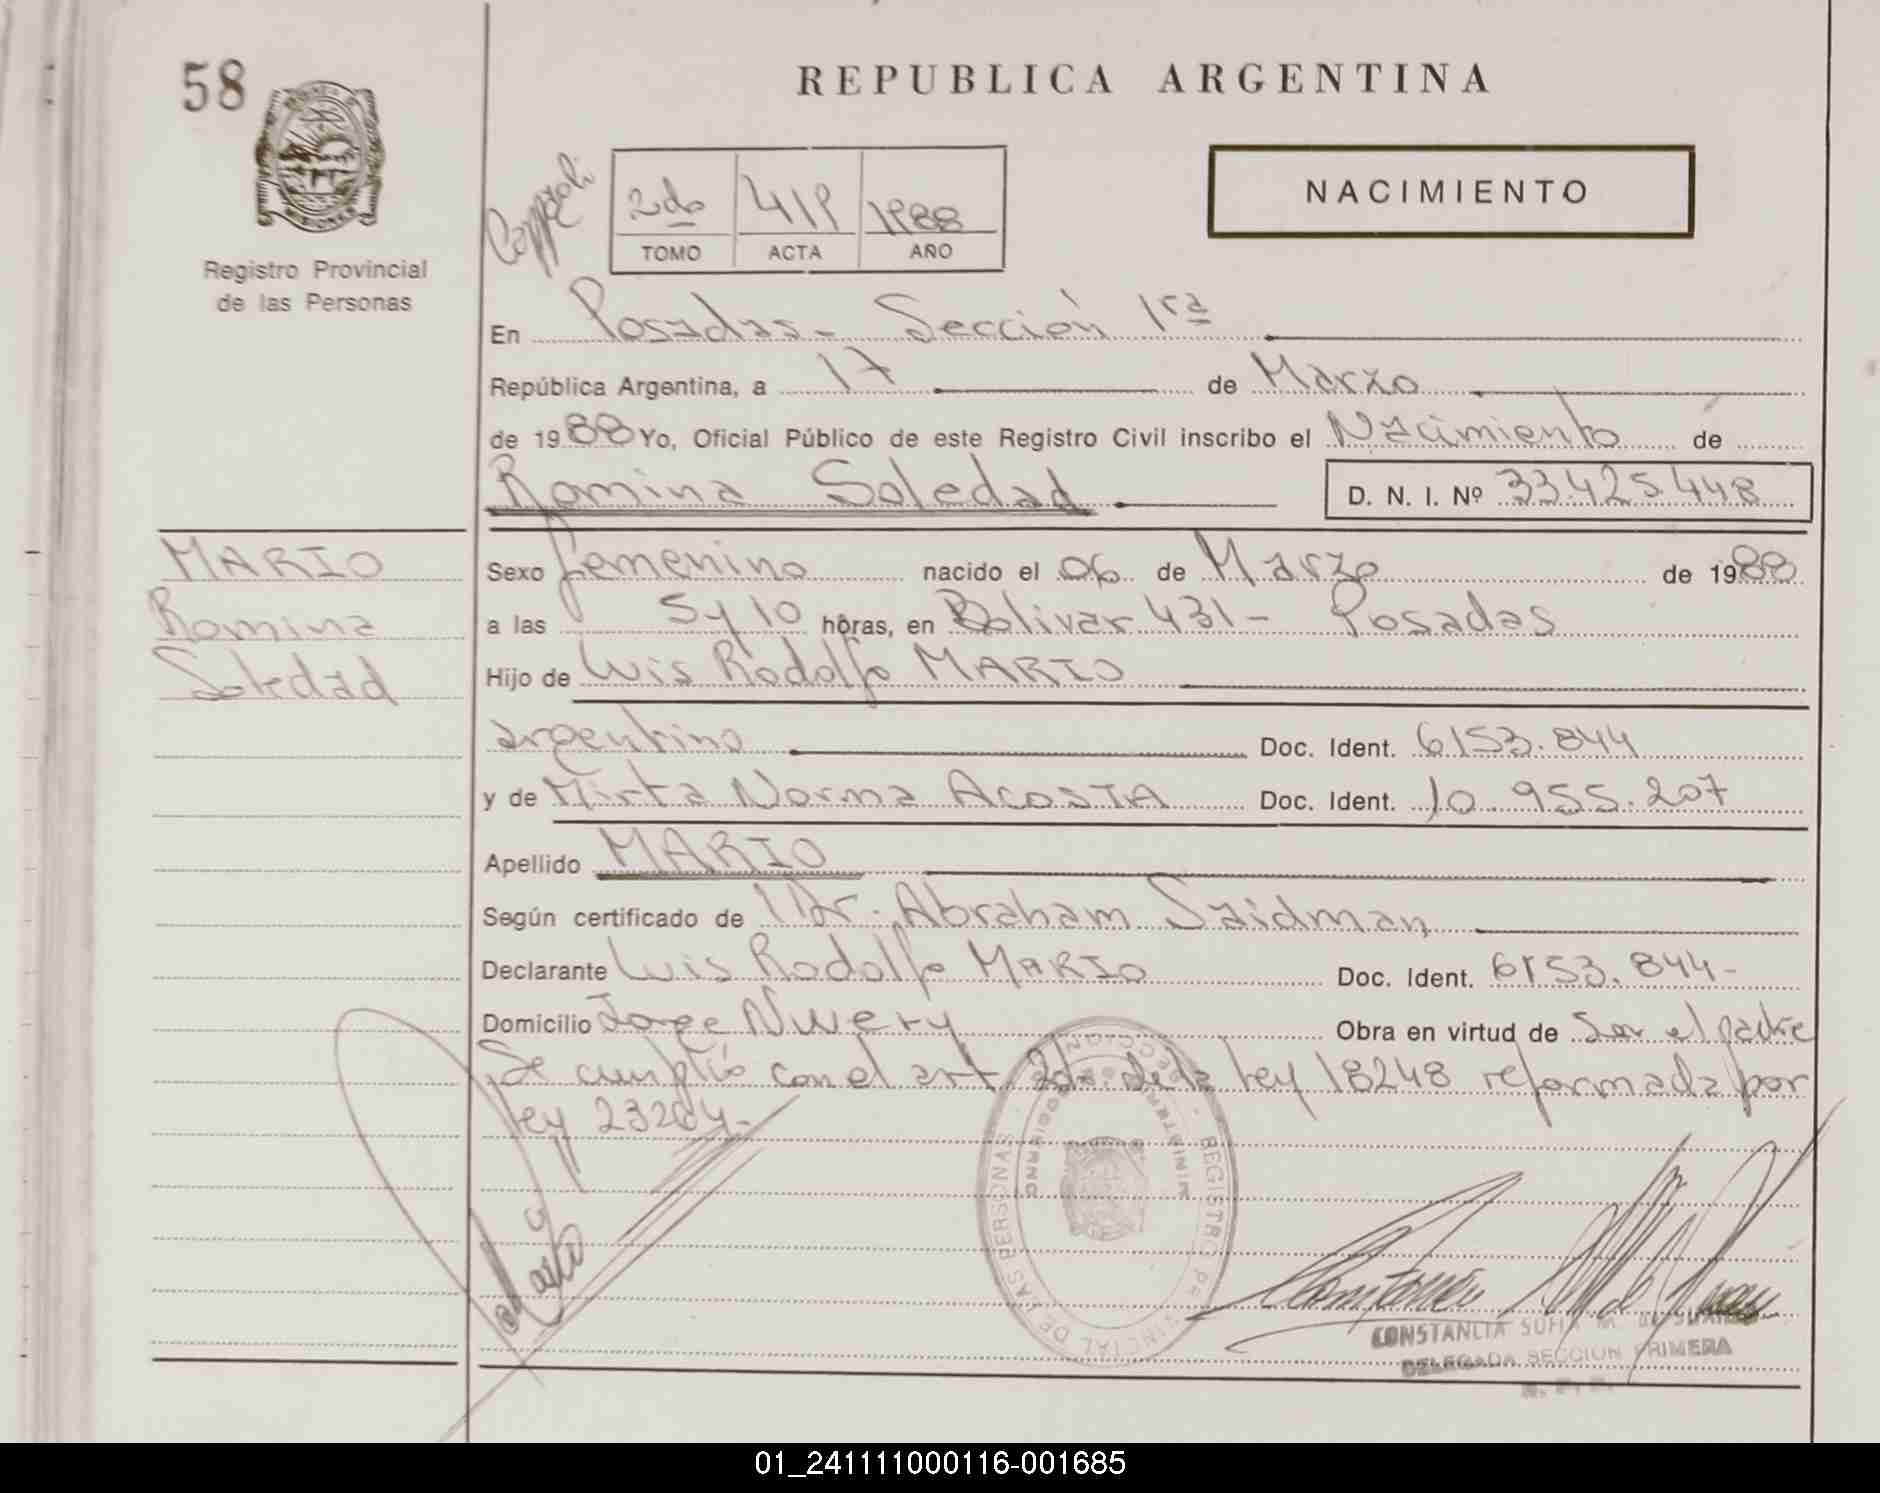 58
REPUBLICA ARGENTINA
Registro Provincial
de las Personas
2do 419 1988
TOMO ACTA AÑO
NACIMIENTO
En Posadas - Sección 1ra
República Argentina, a 17 de Marzo
de 1988 Yo, Oficial Público de este Registro Civil inscribo el Nacimiento de
Romina Soledad D. N. I. Nº 33.425.448
MARIO
Romina
Soledad
Sexo femenino nacido el 06 de Marzo de 1988
a las 5 y 10 horas, en Bolivar 431 - Posadas
Hijo de Luis Rodolfo MARIO
argentino Doc. Ident. 6153.844
y de Mirta Norma ACOSTA Doc. Ident. 10.955.207
Apellido MARIO
Según certificado de Dr. Abraham Saidman
Declarante Luis Rodolfo MARIO Doc. Ident. 6153.844-
Domicilio Jorge Obra en virtud de Ser el padre
Se cumplió con el art 2do. de la ley 18248 reformada por
ley 23204.-
REGISTRO PROVINCIAL DE LAS PERSONAS
MINISTERIO DE GOBIERNO
CONSTANCIA SOFIA M. DE SUAREZ
DELEGADA SECCION PRIMERA
R. P. P.
01_241111000116-001685